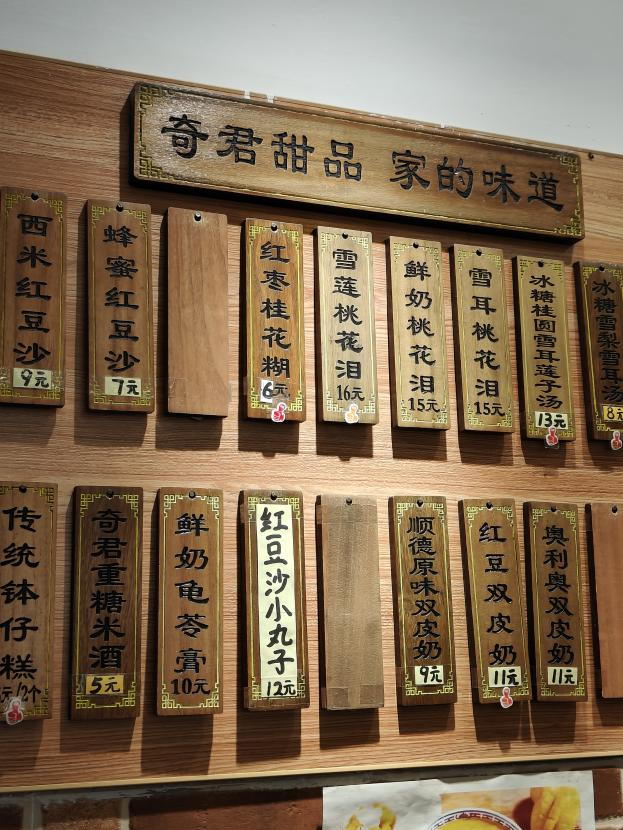 奇君甜品 家的味道
西米红豆沙
9元
蜂蜜红豆沙
7元
红枣桂花糊
6元
雪莲桃花泪
16元
鲜奶桃花泪
15元
雪耳桃花泪
15元
冰糖桂圆雪耳莲子汤
13元
冰糖雪梨雪耳汤
8元
传统钵仔糕
元/2个
奇君重糖米酒
5元
鲜奶龟苓膏
10元
红豆沙小丸子
12元
顺德原味双皮奶
9元
红豆双皮奶
11元
奥利奥双皮奶
11元